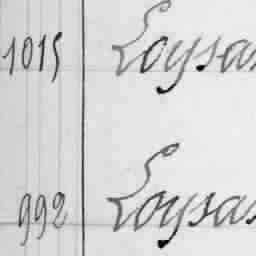 1015 Loysa
992 Loysa